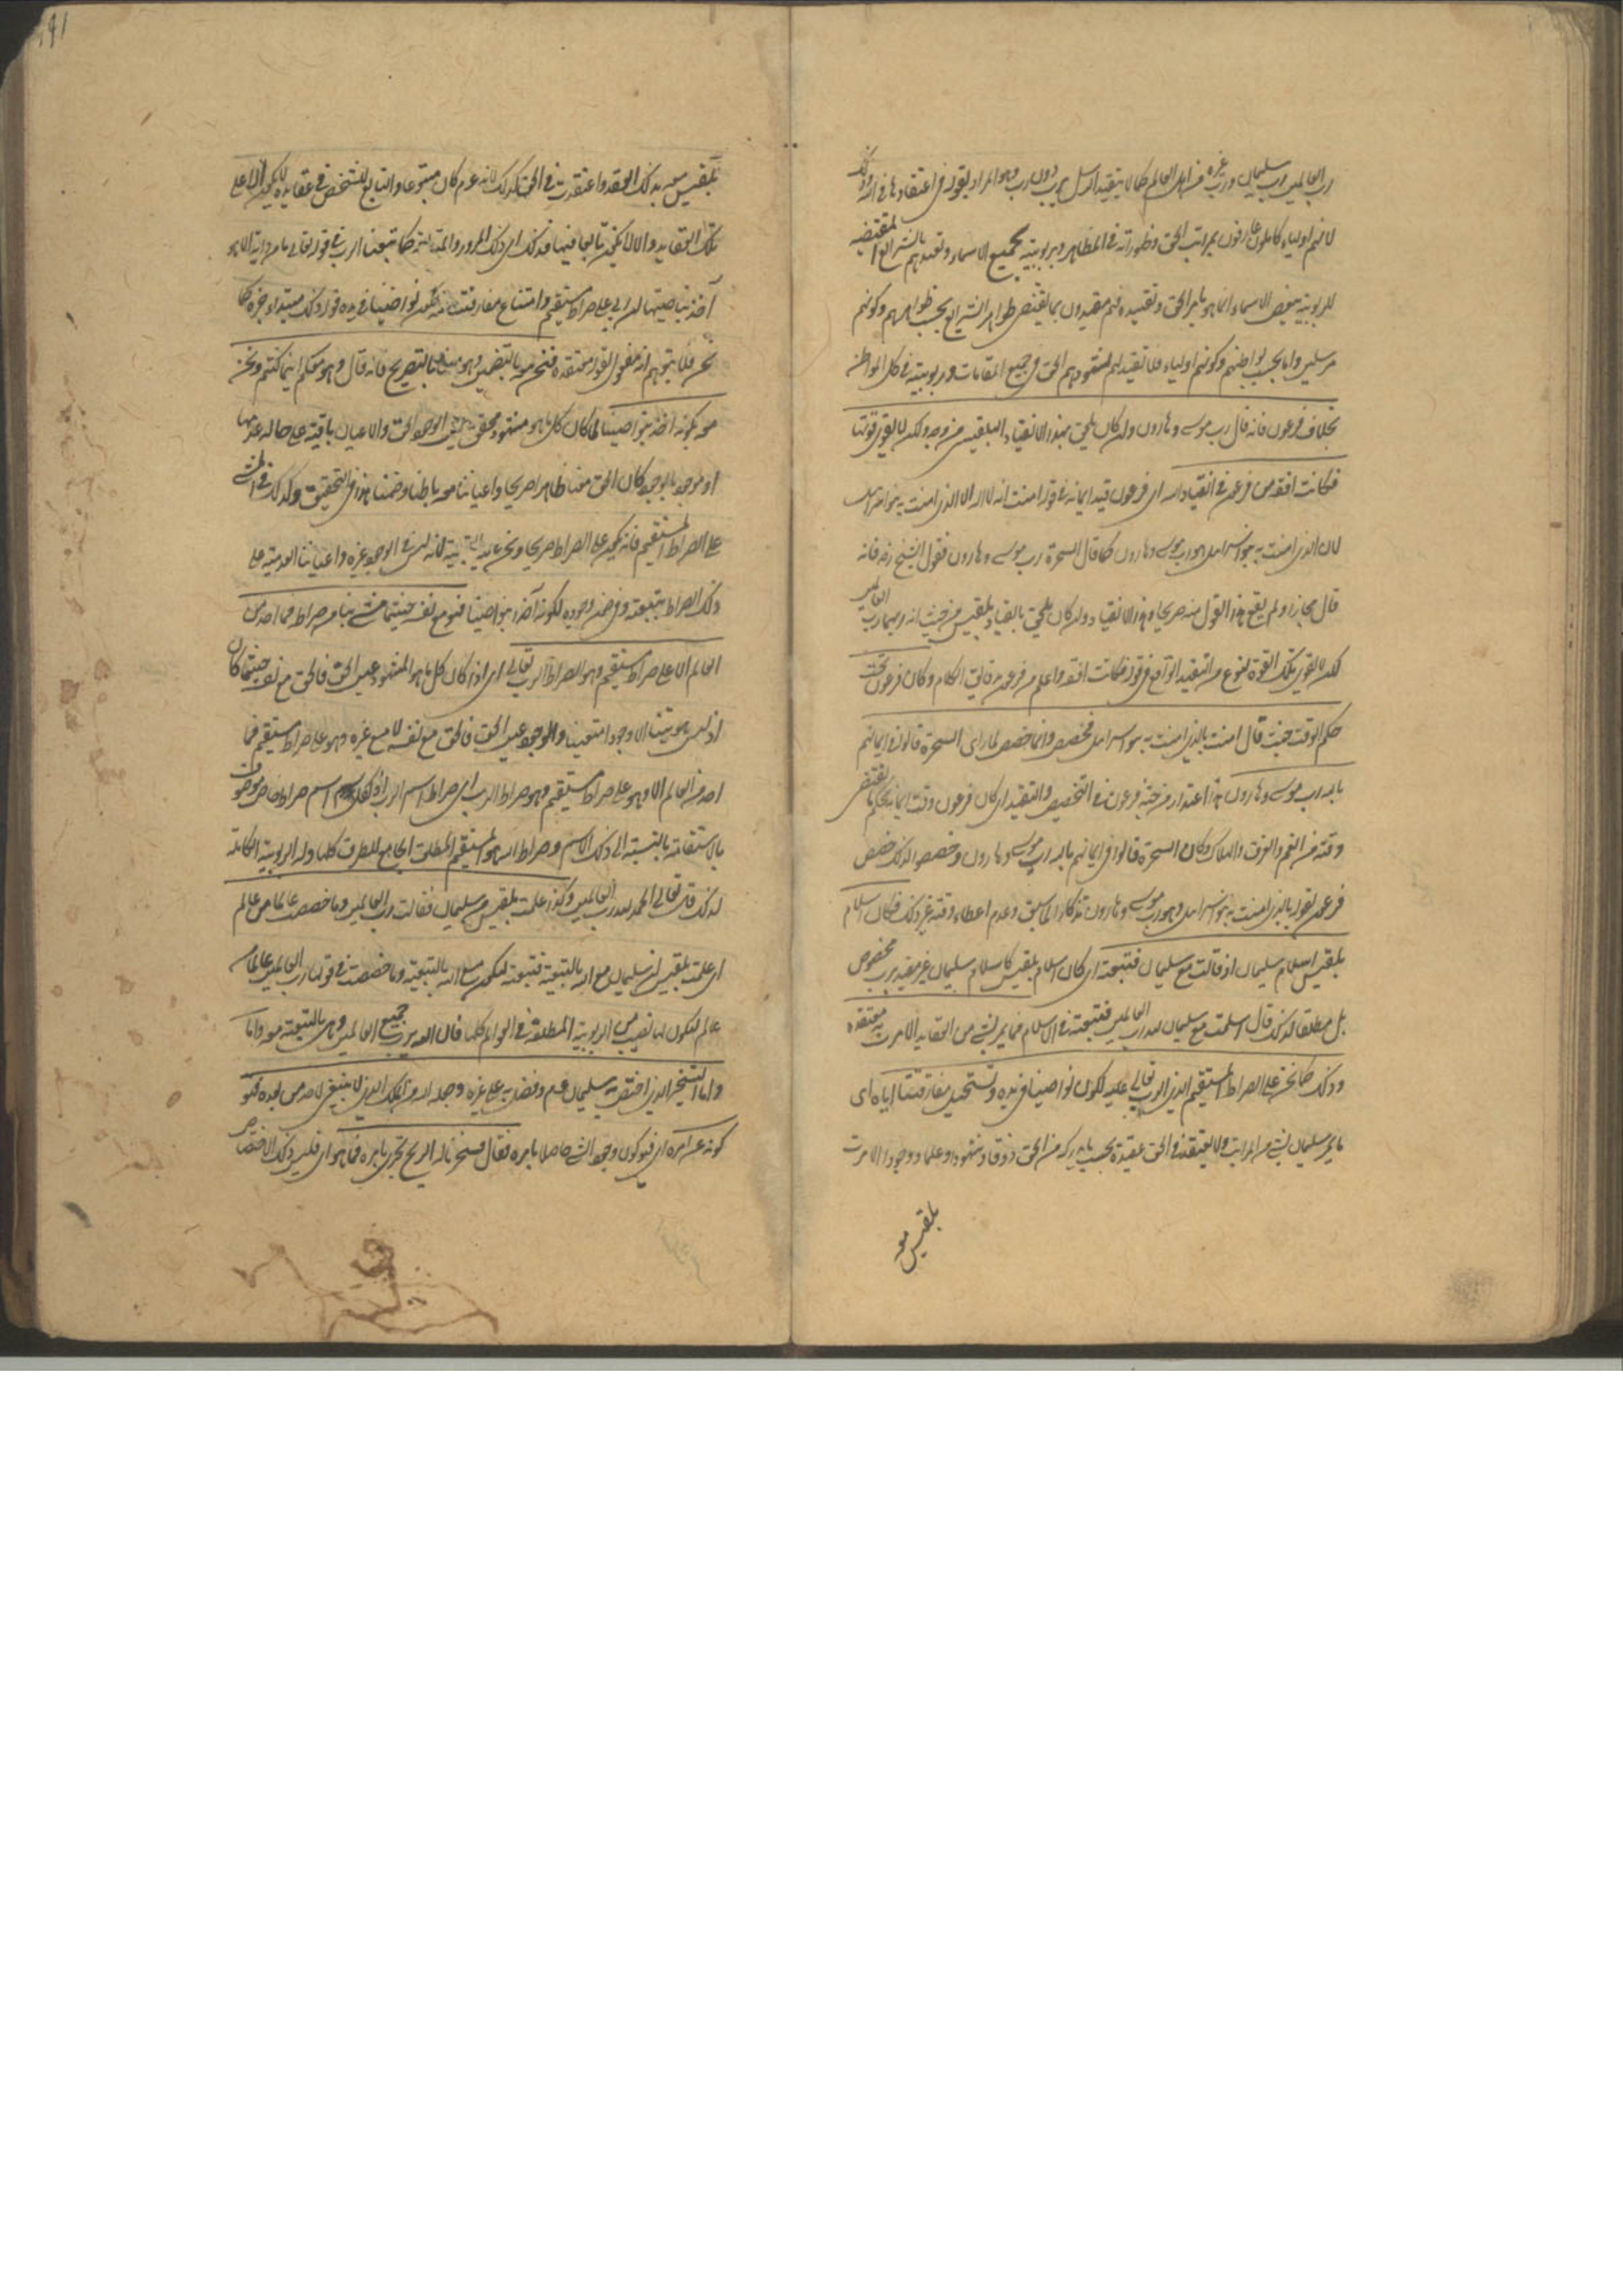 رب العالمين رب سليمان ورب غيره من اهل العالم كما لا يتقيد الرسل برب دون رب وهو المراد بقوله في اعتقادها في الله وذلك
لانهم اولياء كاملون عارفون بمراتب الحق وظهوراته في المظاهر وبربوبيته بجميع الاسماء وتعبدهم بالشرايع المقتضية
للربوبية ببعض الاسماء انما هو بامر الحق وتقييده فهم مقيدون بما يقتضى ظواهر الشرايع بحسب ظواهرهم وكونهم
مرسلين واما بحسب بواطنهم وكونهم اولياء فلا تقيد لهم لشهودهم الحق في جميع المقامات وربوبيته في كل المواطن
بخلاف فرعون فانه قال رب موسى وهارون وان كان يلحق بهذا الانقياد البلقيسى من وجه ولكن لا يقوى قوتها
فكانت افقه من فرعون في انقيادها لله اى فرعون قيد ايمانه في قوله امنت انه لا اله الا الذى امنت به بنوا اسرائيل
لان الذى امنت به بنوا اسرائيل هو رب موسى وهارون كما قال السحرة رب موسى وهارون فقول الشيخ رضه فانه
قال مجازا ولم يقع هذا القول منه صريحا وهذا الانقياد وان كان يلحق بانقياد بلقيس من حيث انه ربهما رب العالمين
لكن لا يقوى بتلك القوة لنوع من التقييد الواقع في قوله فكانت افقه واعلم من فرعون بدقايق الكلام وكان فرعون تحت
حكم الوقت حيث قال امنت بالذى امنت به بنوا اسرائيل فخصص وانما خصص لما راى السحرة قالوا في ايمانهم
بالله رب موسى وهارون هذا اعتذار من جهة فرعون في التخصيص والتقييد اى كان فرعون وقت ايمانه بحكم ما يقتضى
وقته من الغم والغرق والهلاك وكان السحرة قالوا في ايمانهم بالله رب موسى وهارون وخصصوا لذلك خصص
فرعون بقوله بالذى امنت به بنوا اسرائيل وهو رب موسى وهارون تذكارا لما سبق وعدم اعطاء وقته غير ذلك فكان اسلام
بلقيس اسلام سليمان اذ قالت مع سليمان فتبعته اى كان اسلام بلقيس كاسلام سليمان غير مقيد برب مخصوص
بل مطلقا لذلك قال اسلمت مع سليمان لله رب العالمين فتبعته في الاسلام فما يمر بشئ من العقايد الا مرت به معتقدة
وذلك كما نحن على الصراط المستقيم الذى الرب تعالى عليه لكون نواصينا في يده وتستحيل مفارقتنا اياه اى
ما يمر سليمان بشئ من المراتب ولا يعتقد في الحق عقيدة بحسب ما يدركه من الحق ذوقا وشهودا وعلما ووجودا الا مرت
بلقيس معه
بلقيس معه بذلك العقد واعتقدت في الحق كذلك لانه عم كان متبوعا والتابع للشخص في عقايده لا يكون الا على
تلك العقايد والا لا يكون تابعا فيها فذلك اى ذلك المرور والمتابعة كما تبعنا الرب في قوله تعالى ما من دابة الا هو
آخذ بناصيتها ان ربى على صراط مستقيم وامتناع مفارقتنا منه لكون نواصينا في يده قوله ذلك مبتداء خبره كما
نحن فلا يتوهم انه مفعول القول معتقدة فنحن معه بالتضمين وهو معنا بالتصريح فانه قال وهو معكم اينما كنتم ونحن
معه بكونه آخذا بنواصينا لما كان كل ما هو مشهود محقق عين الوجود الحق والاعيان باقية على حاله عدمها
او موجود بالوجود كان الحق معنا ظاهرا صريحا واعياننا معه باطنا وضمنا هذا في التحقيق وكذلك في المشى
على الصراط المستقيم فانه يكون على الصراط صريحا ونحن عليه بالتبعية لانه ليس في الوجود غيره واعياننا العدمية على
ذلك الصراط بتبعته وفي ضمن وجوده لكونه آخذا بنواصينا فهو مع نفسه حيثما مشى بنا من صراطه فما احد من
العالم الا على صراط مستقيم وهو الصراط الرب تعالى اى اذا كان كل ما هو المشهود عين الحق فالحق مع نفسه حيثما كان
اذ ليس هويتنا الا وجودا متعينا والوجود عين الحق فالحق مع نفسه لا مع غيره وهو على صراط مستقيم فما
احد من العالم الا وهو على صراط مستقيم وهو صراط الرب اى صراط اسم الرب اذ لكل اسم صراط خاص موصوف
بالاستقامة بالنسبة الى ذلك الاسم وصراط الله هو المستقيم المطلق الجامع للطرق كلها وله الربوبية الكاملة
لذلك قال تعالى الحمد لله رب العالمين وكذا علمت بلقيس من سليمان فقالت رب العالمين وما خصصت عالما من عالم
اى علمت بلقيس ان سليمان مع الله بالتبعية فتبعته لتكون مع الله بالتبعية وما خصصت في قولها رب العالمين عالما من
عالم لتكون لها نصيب من الربوبية المطلقة في العوالم كلها فان الله يرب جميع العالمين وهى بالتبعية معه واما
واما التسخير الذى اختص به سليمان عم وفضل به على غيره وجعله الله من الملك الذى لا ينبغى لاحد من بعده فهو
كونه عن امره اى فهو كون وجود الشئ حاصلا بامره فقال فسخرنا له الريح تجرى بامره فما هو اى فليس ذلك الاختصاص